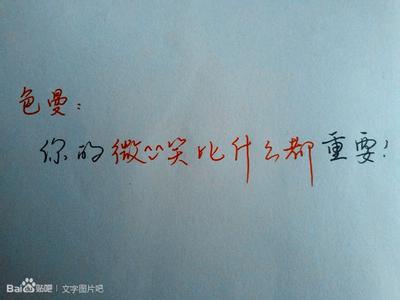 色曼:
你的微^^笑比什么都重要!
Bai贴吧 | 文字图片吧